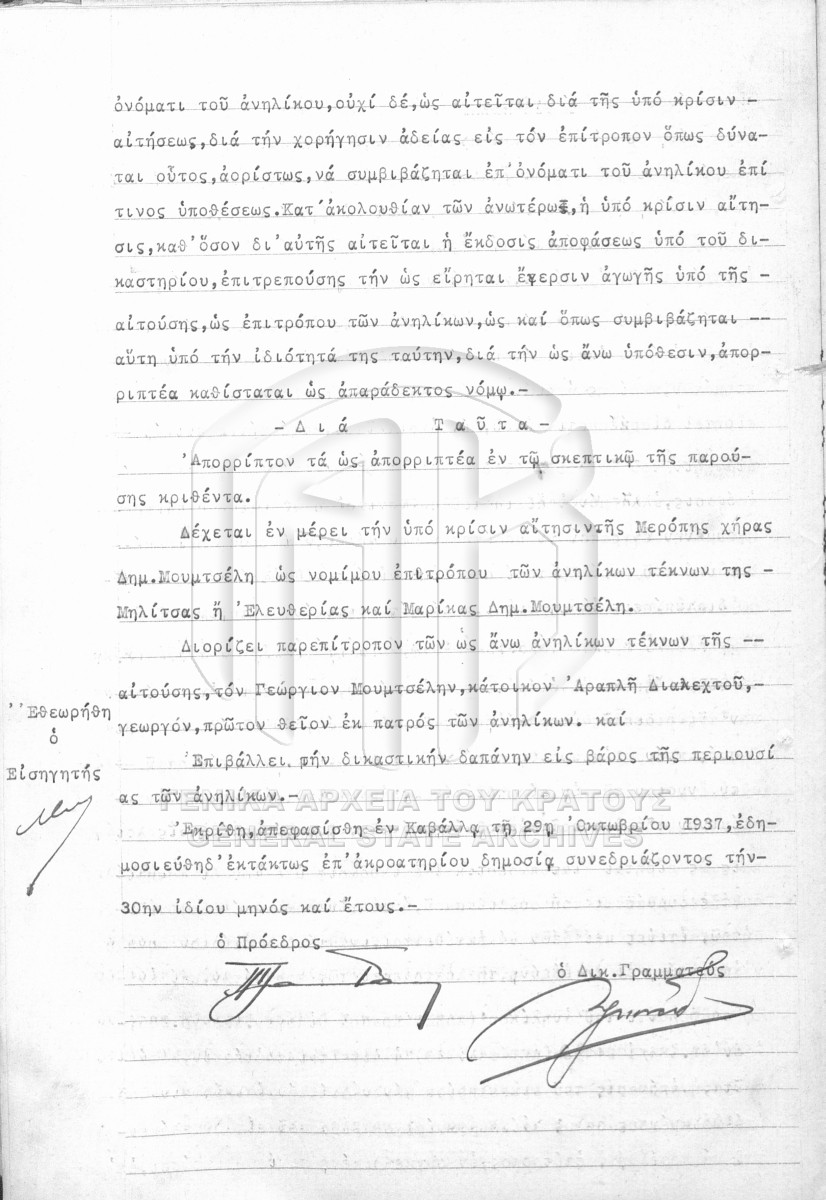 ὀνόματι τοῦ ἀνηλίκου,οὐχί δέ,ὡς αἰτεῖται διά τῆς ὑπό κρίσιν -
αἰτήσεως,διά τήν χορήγησιν ἀδείας εἰς τόν ἐπίτροπον ὅπως δύνα-
ται οὗτος,ἀορίστως,νά συμβιβάζηται ἐπ'ὀνόματι τοῦ ἀνηλίκου ἐπί
τινος ὑποθέσεως.Κατ'ἀκολουθίαν τῶν ἀνωτέρω,ἡ ὑπό κρίσιν αἴτη-
σις,καθ'ὅσον δι'αὐτῆς αἰτεῖται ἡ ἔκδοσις ἀποφάσεως ὑπό τοῦ δι-
καστηρίου,ἐπιτρεπούσης τήν ὡς εἴρηται ἔγερσιν ἀγωγῆς ὑπό τῆς -
αἰτούσης,ὡς ἐπιτρόπου τῶν ἀνηλίκων,ὡς καί ὅπως συμβιβάζηται --
αὕτη ὑπό τήν ἰδιότητά της ταύτην,διά τήν ὡς ἄνω ὑπόθεσιν,ἀπορ-
ριπτέα καθίσταται ὡς ἀπαράδεκτος νόμῳ.-
-Διά Ταῦτα-
'Απορρίπτον τά ὡς ἀπορριπτέα ἐν τῷ σκεπτικῷ τῆς παρού-
σης κριθέντα.
Δέχεται ἐν μέρει τήν ὑπό κρίσιν αἴτησιντῆς Μερόπης χήρας
Δημ.Μουμτσέλη ὡς νομίμου ἐπιτρόπου τῶν ἀνηλίκων τέκνων της -
Μηλίτσας ἤ 'Ελευθερίας καί Μαρίκας Δημ.Μουμτσέλη.
Διορίζει παρεπίτροπον τῶν ὡς ἄνω ἀνηλίκων τέκνων τῆς --
αἰτούσης,τόν Γεώργιον Μουμτσέλην,κάτοικον 'Αραπλῆ Διαλεχτοῦ,-
γεωργόν,πρῶτον θεῖον ἐκ πατρός τῶν ἀνηλίκων. καί
'Επιβάλλει τήν δικαστικήν δαπάνην εἰς βάρος τῆς περιουσί
ας τῶν ἀνηλίκων.-
'Εκρίθη,ἀπεφασίσθη ἐν Καβάλλᾳ τῇ 29ῃ 'Οκτωβρίου 1937,ἐδη-
μοσιεύθηδ'ἐκτάκτως ἐπ'ἀκροατηρίου δημοσίᾳ συνεδριάζοντος τήν-
30ην ἰδίου μηνός καί ἔτους.-
ὁ Πρόεδρος
ὁ Δικ.Γραμματεύς
''Εθεωρήθη
ὁ
Εἰσηγητής
ΓΕΝΙΚΑ ΑΡΧΕΙΑ ΤΟΥ ΚΡΑΤΟΥΣ
GENERAL STATE ARCHIVES